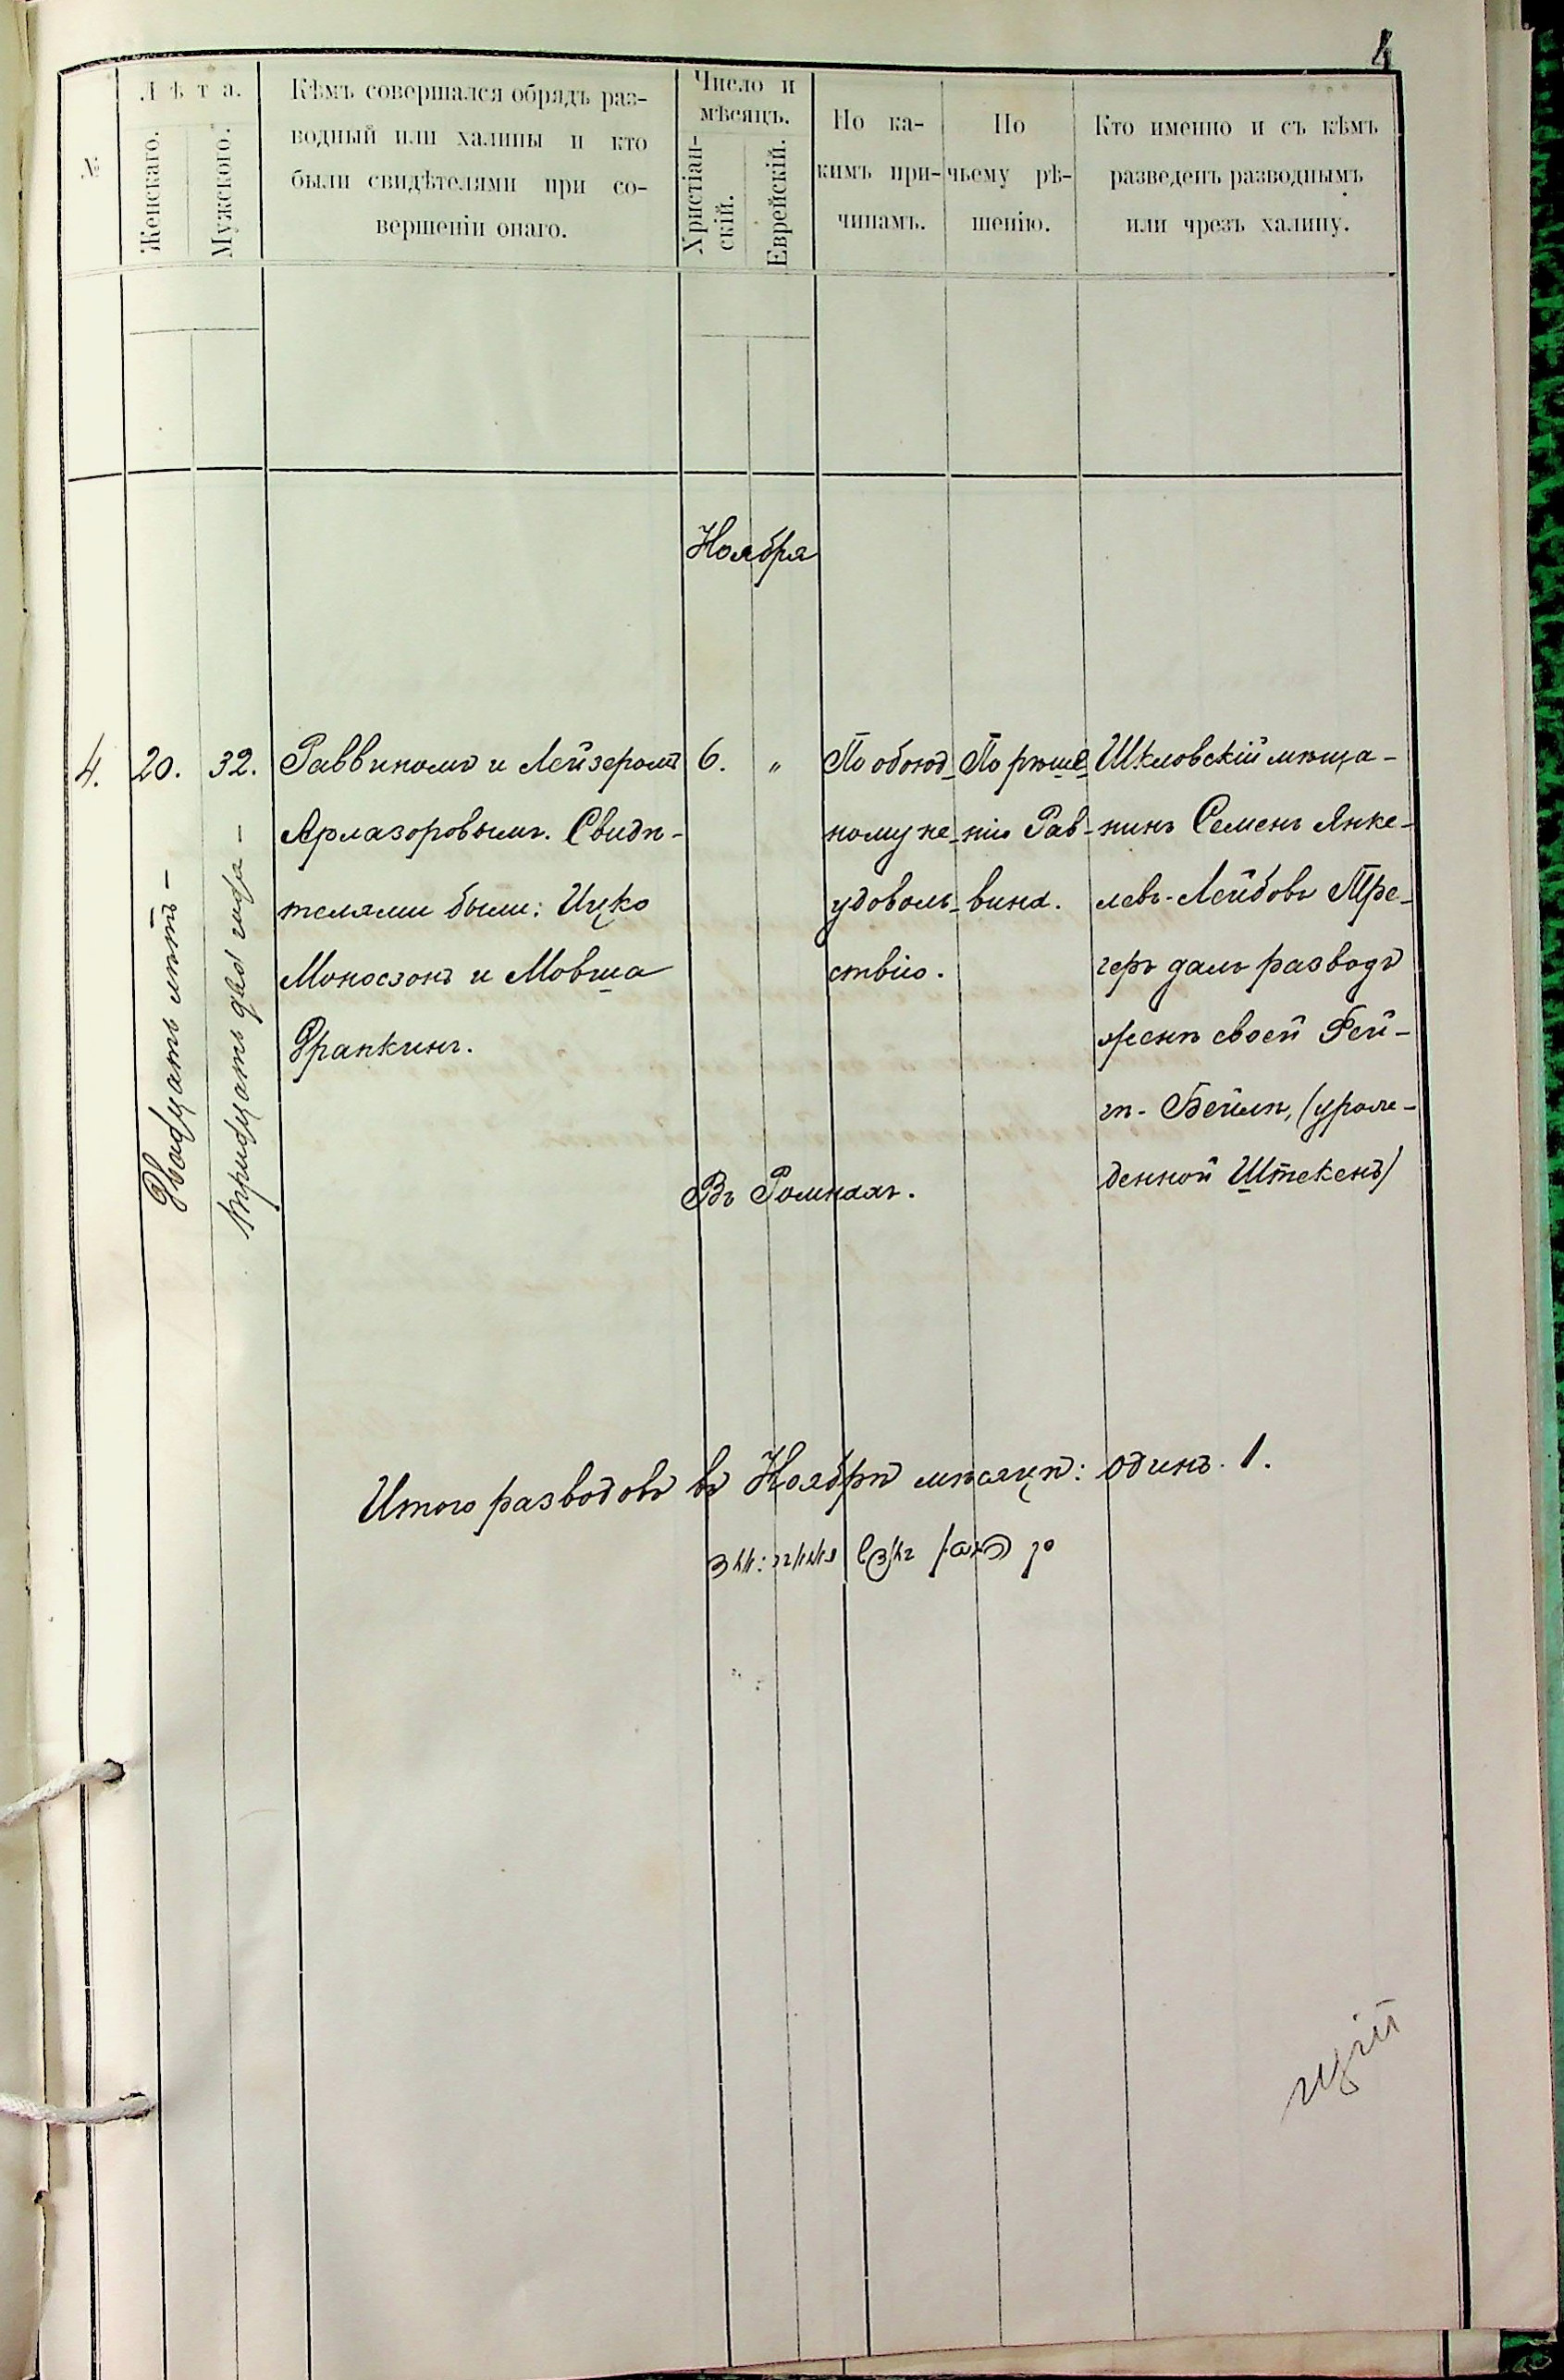 4
№
Лѣта.
Женскаго.
Мужского.
Кѣмъ совершался обрядъ раз-
водный или халицы и кто
были свидѣтелями при со-
вершеніи онаго.
Число и
мѣсяцъ.
Христіан-
скій.
Еврейскій.
По ка-
кимъ при-
чинамъ.
По
чьему рѣ-
шенію.
Кто именно и съ кѣмъ
разведенъ разводнымъ
или чрезъ халицу.
Ноября
4.
20.
Двадцать лѣтъ -
32.
тридцать два года -
Раввиномъ и Лейзеромъ
Арлазоровымъ. Свидѣ-
телями были: Ицко
Моносзонъ и Мовша
Франкинъ.
6.
"
По обоюд-
ному не-
удоволь-
ствію.
По рѣше-
нію Рав-
вина.
Шкловскій мѣща-
нинъ Семенъ Янке-
левъ-Лейбовъ Тре-
геръ далъ разводъ
женѣ своей Рей-
зѣ-Бейлѣ, (урож-
денной Штекенъ)
Въ Ромнахъ.
Итого разводовъ въ Ноябрѣ мѣсяцѣ: одинъ. 1.